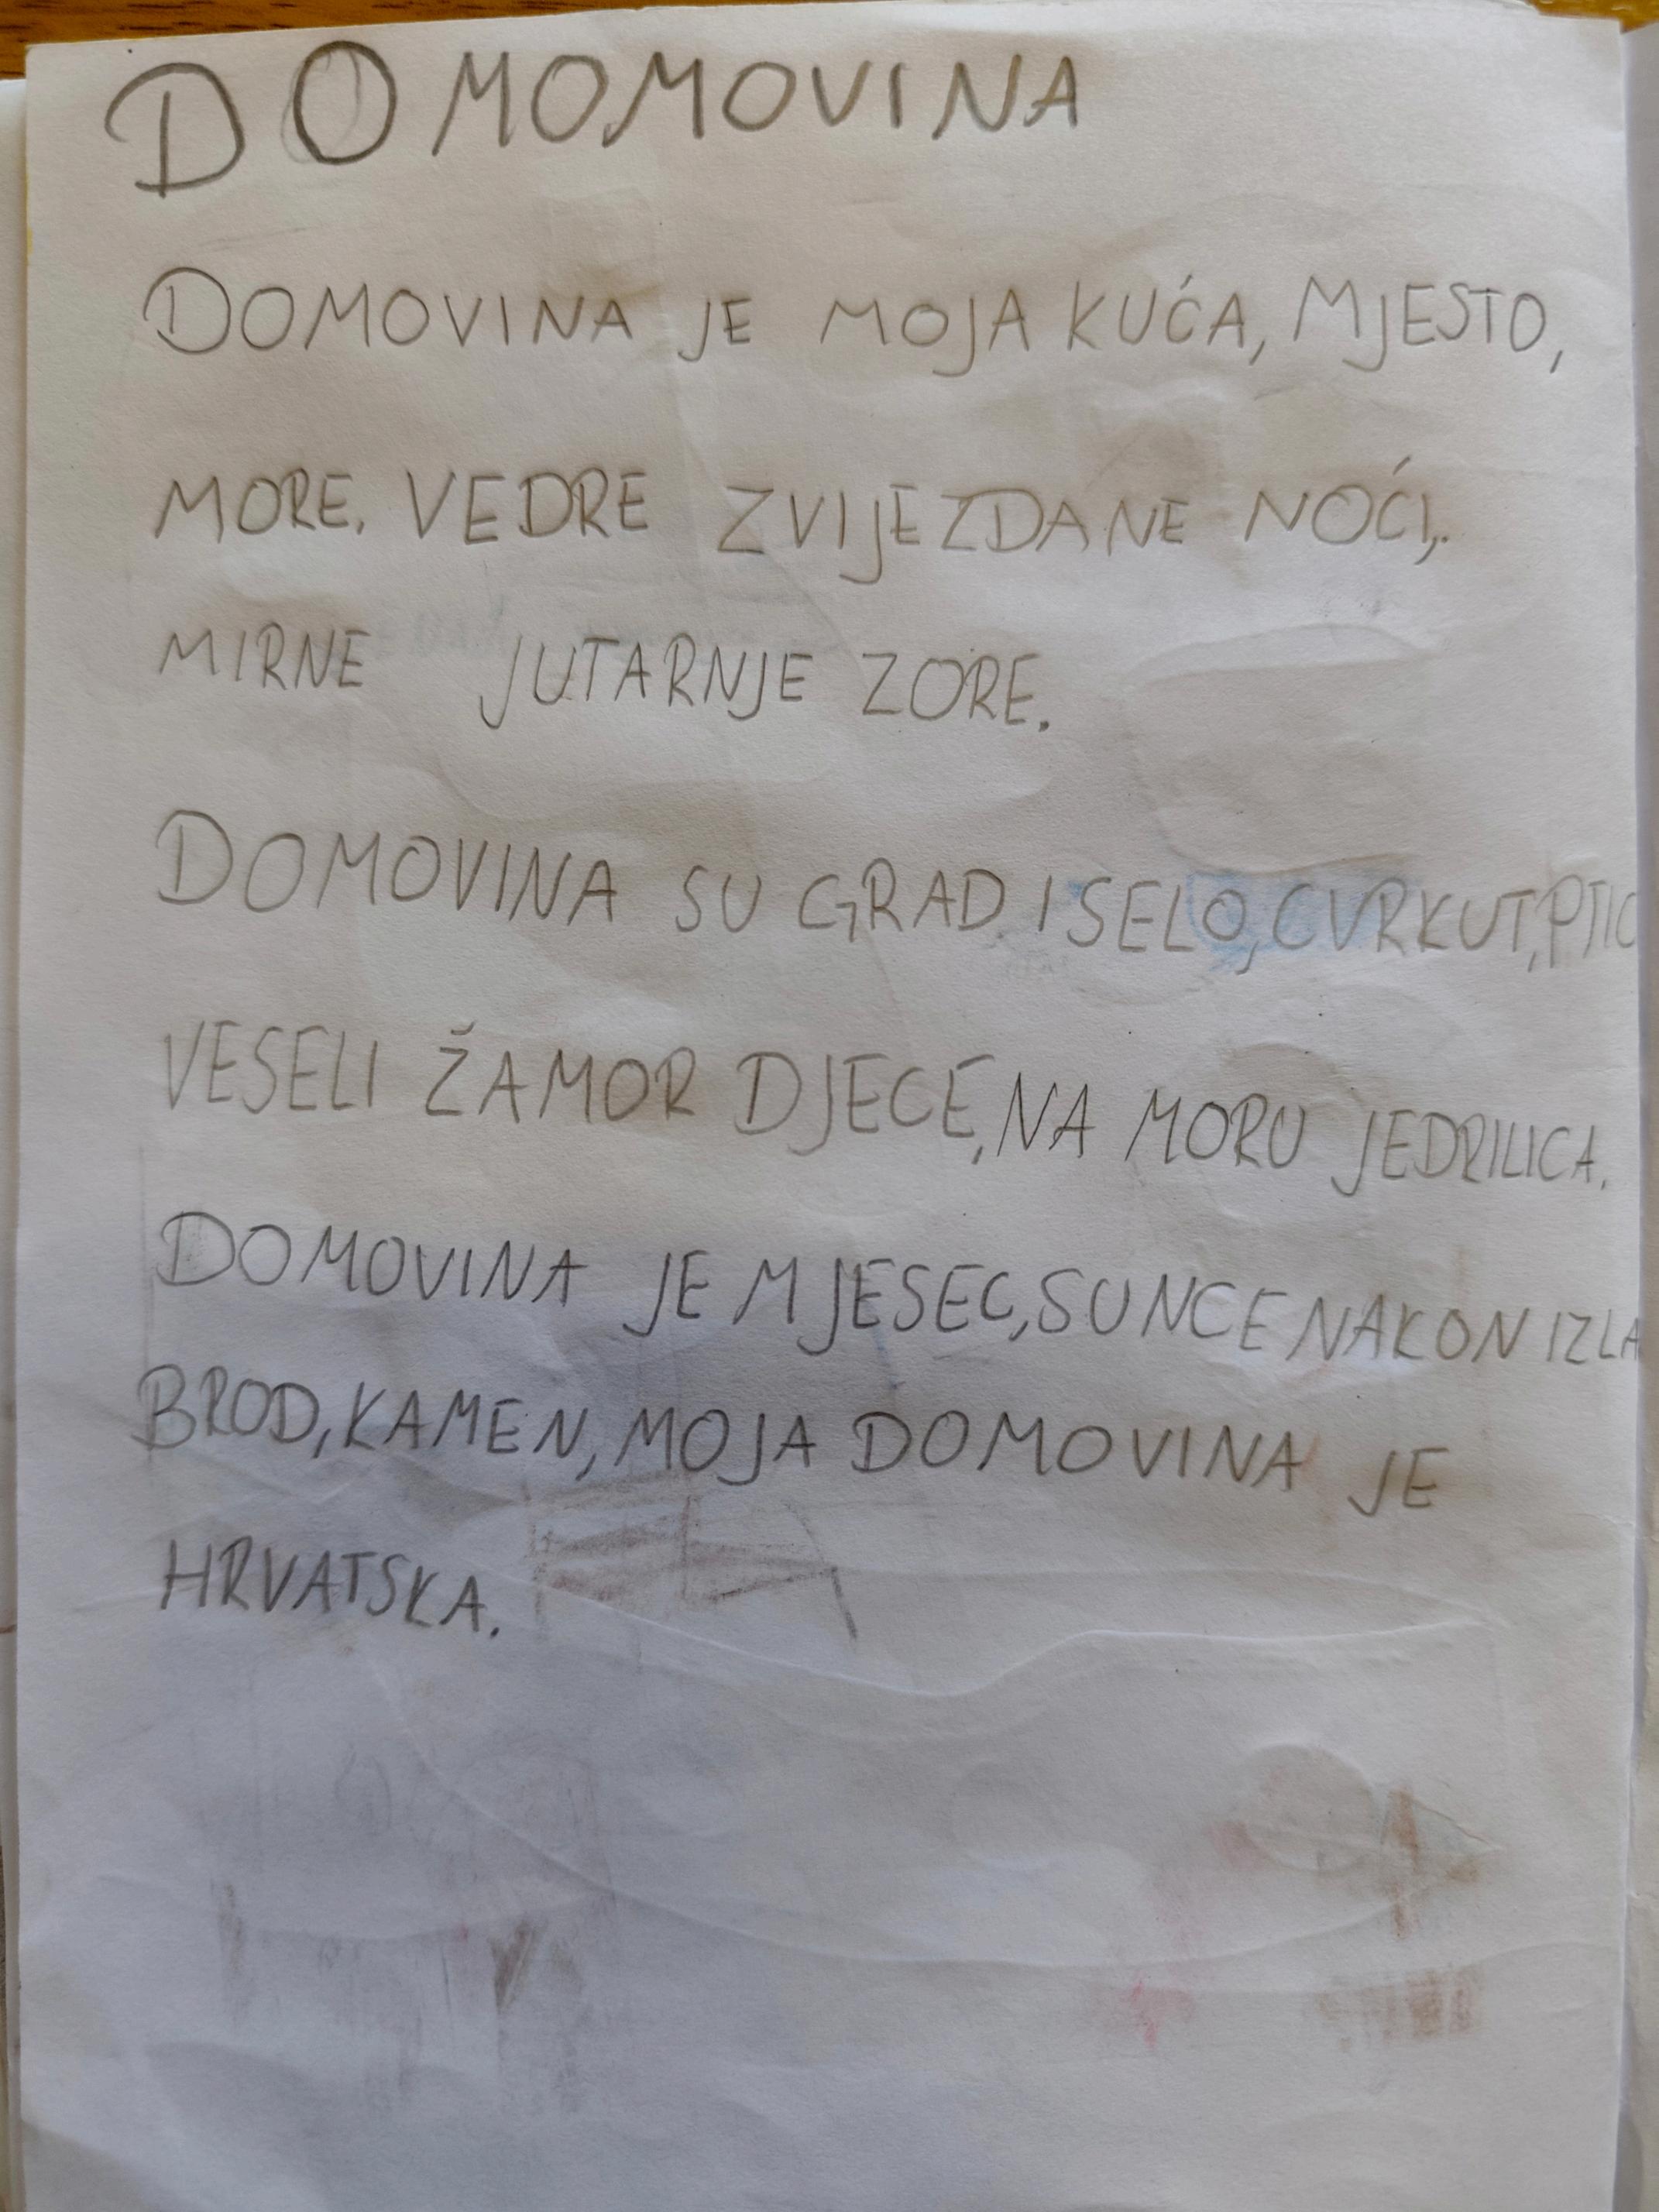 DOMOMOVINA
DOMOVINA JE MOJA KUĆA, MJESTO,
MORE. VEDRE ZVIJEZDANE NOĆI,.
MIRNE JUTARNJE ZORE.
DOMOVINA SU GRAD I SELO, CVRKUT, PTIC
VESELI ŽAMOR DJECE, NA MORU JEDRILICA.
DOMOVINA JE MJESEC, SUNCE NAKON IZLA
BROD, KAMEN, MOJA DOMOVINA JE
HRVATSKA.